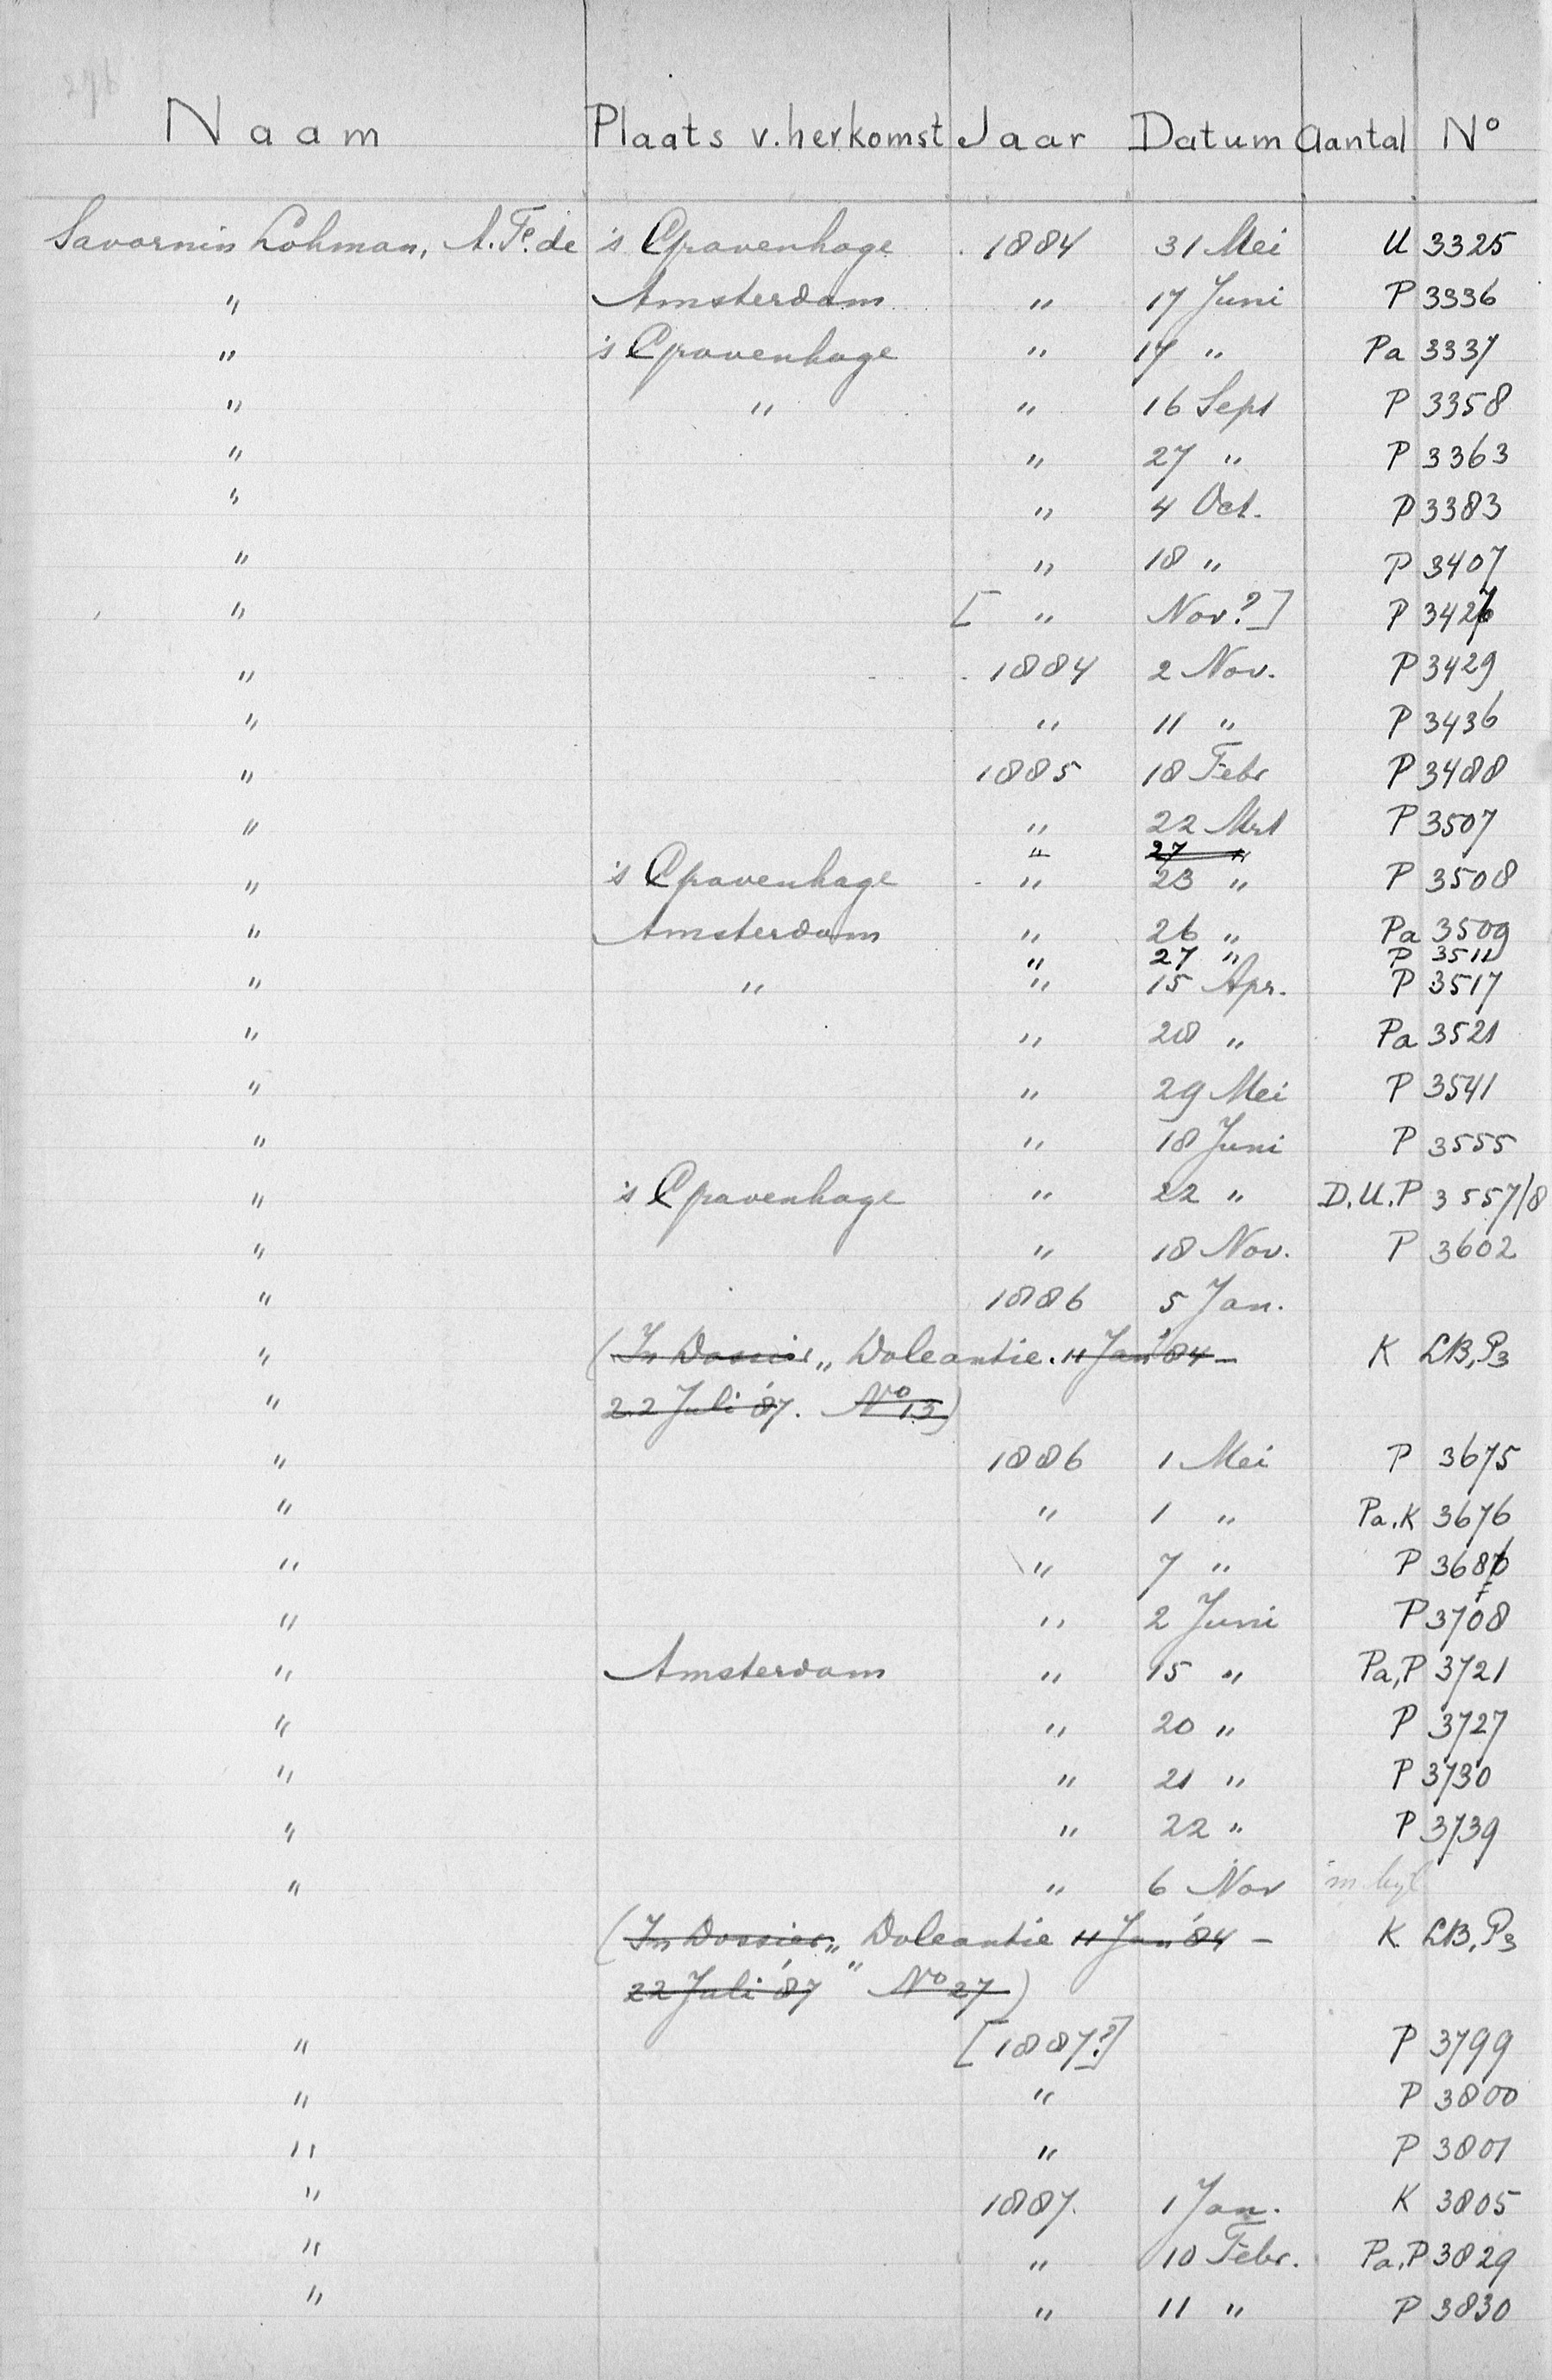 Naam Plaats v. herkomst Jaar Datum Aantal Nº
Savornin Lohman, A. F. de 's Gravenhage 1884 31 Mei U 3325
" Amsterdam " 17 Juni P 3336
" 's Gravenhage " 17 " Pa 3337
" " " 16 Sept P 3358
" " 27 " P 3363
" " 4 Oct. P 3383
" " 18 " P 3407
" [ " Nov?] P 3427
" 1884 2 Nov. P 3429
" " 11 " P 3436
" 1885 18 Febr P 3488
" " 22 Mrt P 3507
" 27 "
" 's Gravenhage " 23 " P 3508
" Amsterdam " 26 " Pa 3509
" 27 " P 3511
" " " 15 Apr. P 3517
" " 28 " Pa 3521
" " 29 Mei P 3541
" " 18 Juni P 3555
" 's Gravenhage " 22 " D.U.P 3557/8
" " 18 Nov. P 3602
" 1886 5 Jan.
" (In Dossier „ Doleantie. 11 Jan '84 – K LB, P3
" 22 Juli '87. Nº 13)
" 1886 1 Mei P 3675
" " 1 " Pa.K 3676
" " 7 " P 3687
" " 2 Juni P 3708
" Amsterdam " 15 " Pa,P 3721
" " 20 " P 3727
" " 21 " P 3730
" " 22 " P 3739
" " 6 Nov
(In Dossier „ Doleantie 11 Jan '84 – K. LB, P3
22 Juli '87 " Nº 27)
" [1887?] P 3799
" " P 3800
" " P 3801
" 1887. 1 Jan. K 3805
" " 10 Febr. Pa.P 3829
" " 11 " P 3830